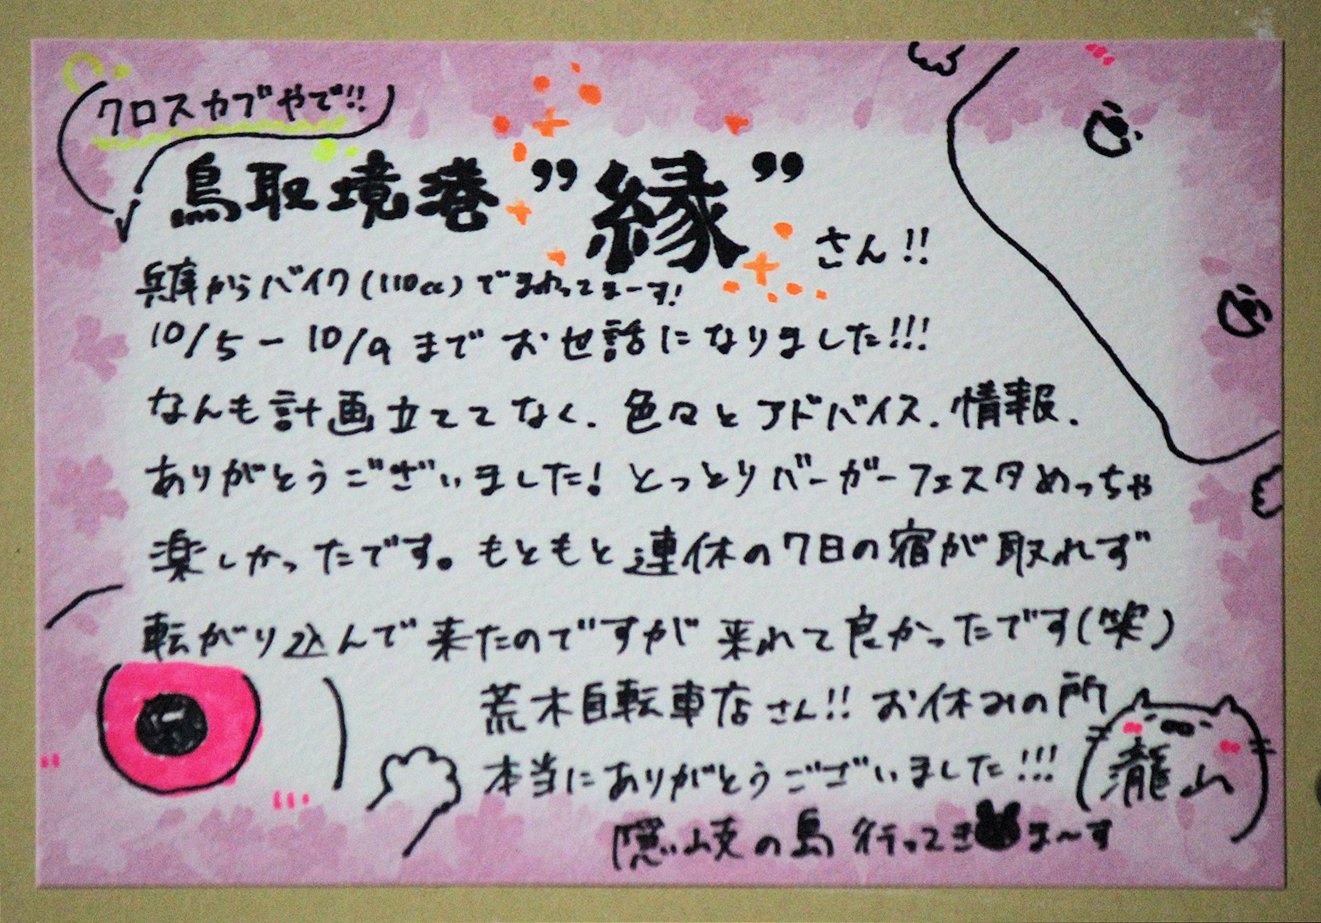 クロスカブやで!!
鳥取境港”縁”さん!!
兵庫からバイク(110cc)でまわってまーす!
10/5-10/9までお世話になりました!!!
なんも計画立ててなく、色々とアドバイス、情報、
ありがとうございました!とっとりバーガーフェスタめっちゃ
楽しかったです。もともと連休の7日の宿が取れず
転がり込んで来たのですが来れて良かったです(笑)
荒木自転車店さん!!お休みの所
本当にありがとうございました!!!
瀧山
隠岐の島行ってきま〜す